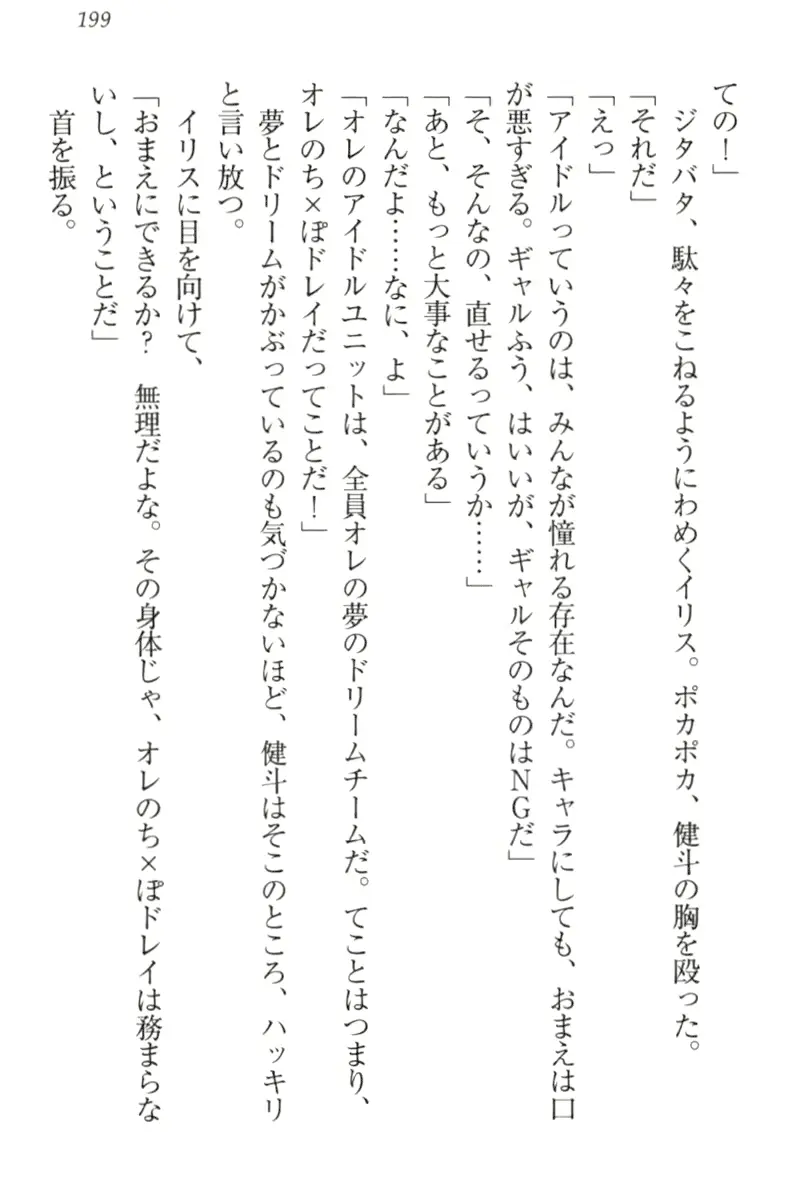 199
ての！」
ジタバタ、駄々をこねるようにわめくイリス。ポカポカ、健斗の胸を殴った。
「それだ」
「えっ」
「アイドルっていうのは、みんなが憧れる存在なんだ。キャラにしても、おまえは口
が悪すぎる。ギャルふう、はいいが、ギャルそのものはＮＧだ」
「そ、そんなの、直せるっていうか……」
「あと、もっと大事なことがある」
「なんだよ……なに、よ」
「オレのアイドルユニットは、全員オレの夢のドリームチームだ。てことはつまり、
オレのち×ぽドレイだってことだ！」
夢とドリームがかぶっているのも気づかないほど、健斗はそこのところ、ハッキリ
と言い放つ。
イリスに目を向けて、
「おまえにできるか？　無理だよな。その身体じゃ、オレのち×ぽドレイは務まらな
いし、ということだ」
首を振る。